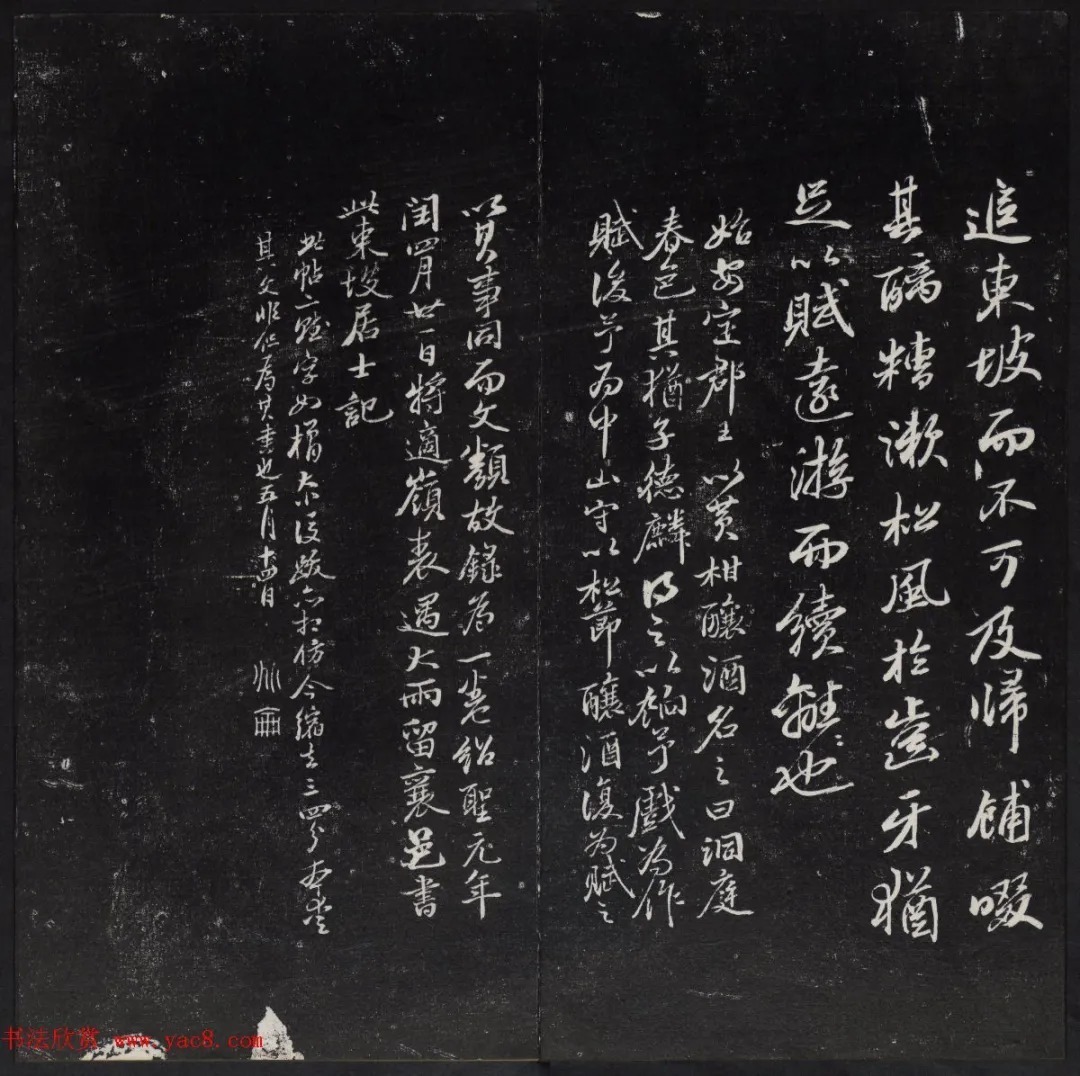 追東坡而不可及歸餔啜
其醨糟漱松風於齒牙猶
足以賦遠游而續離也
始安定郡王以黃柑釀酒名之曰洞庭
春色其猶子德麟得之以餉予戲為作
賦後予為中山守以松節釀酒復為賦之
以其事同而文類故錄為一卷紹聖元年
閏四月廿一日將適嶺表遇大雨留襄邑書
此東坡居士記
此帖二賦字如榴大後跋亦相仿今縮去三四分本愛
其文非但為其書也五月十四日
书法欣赏 www.yac8.com